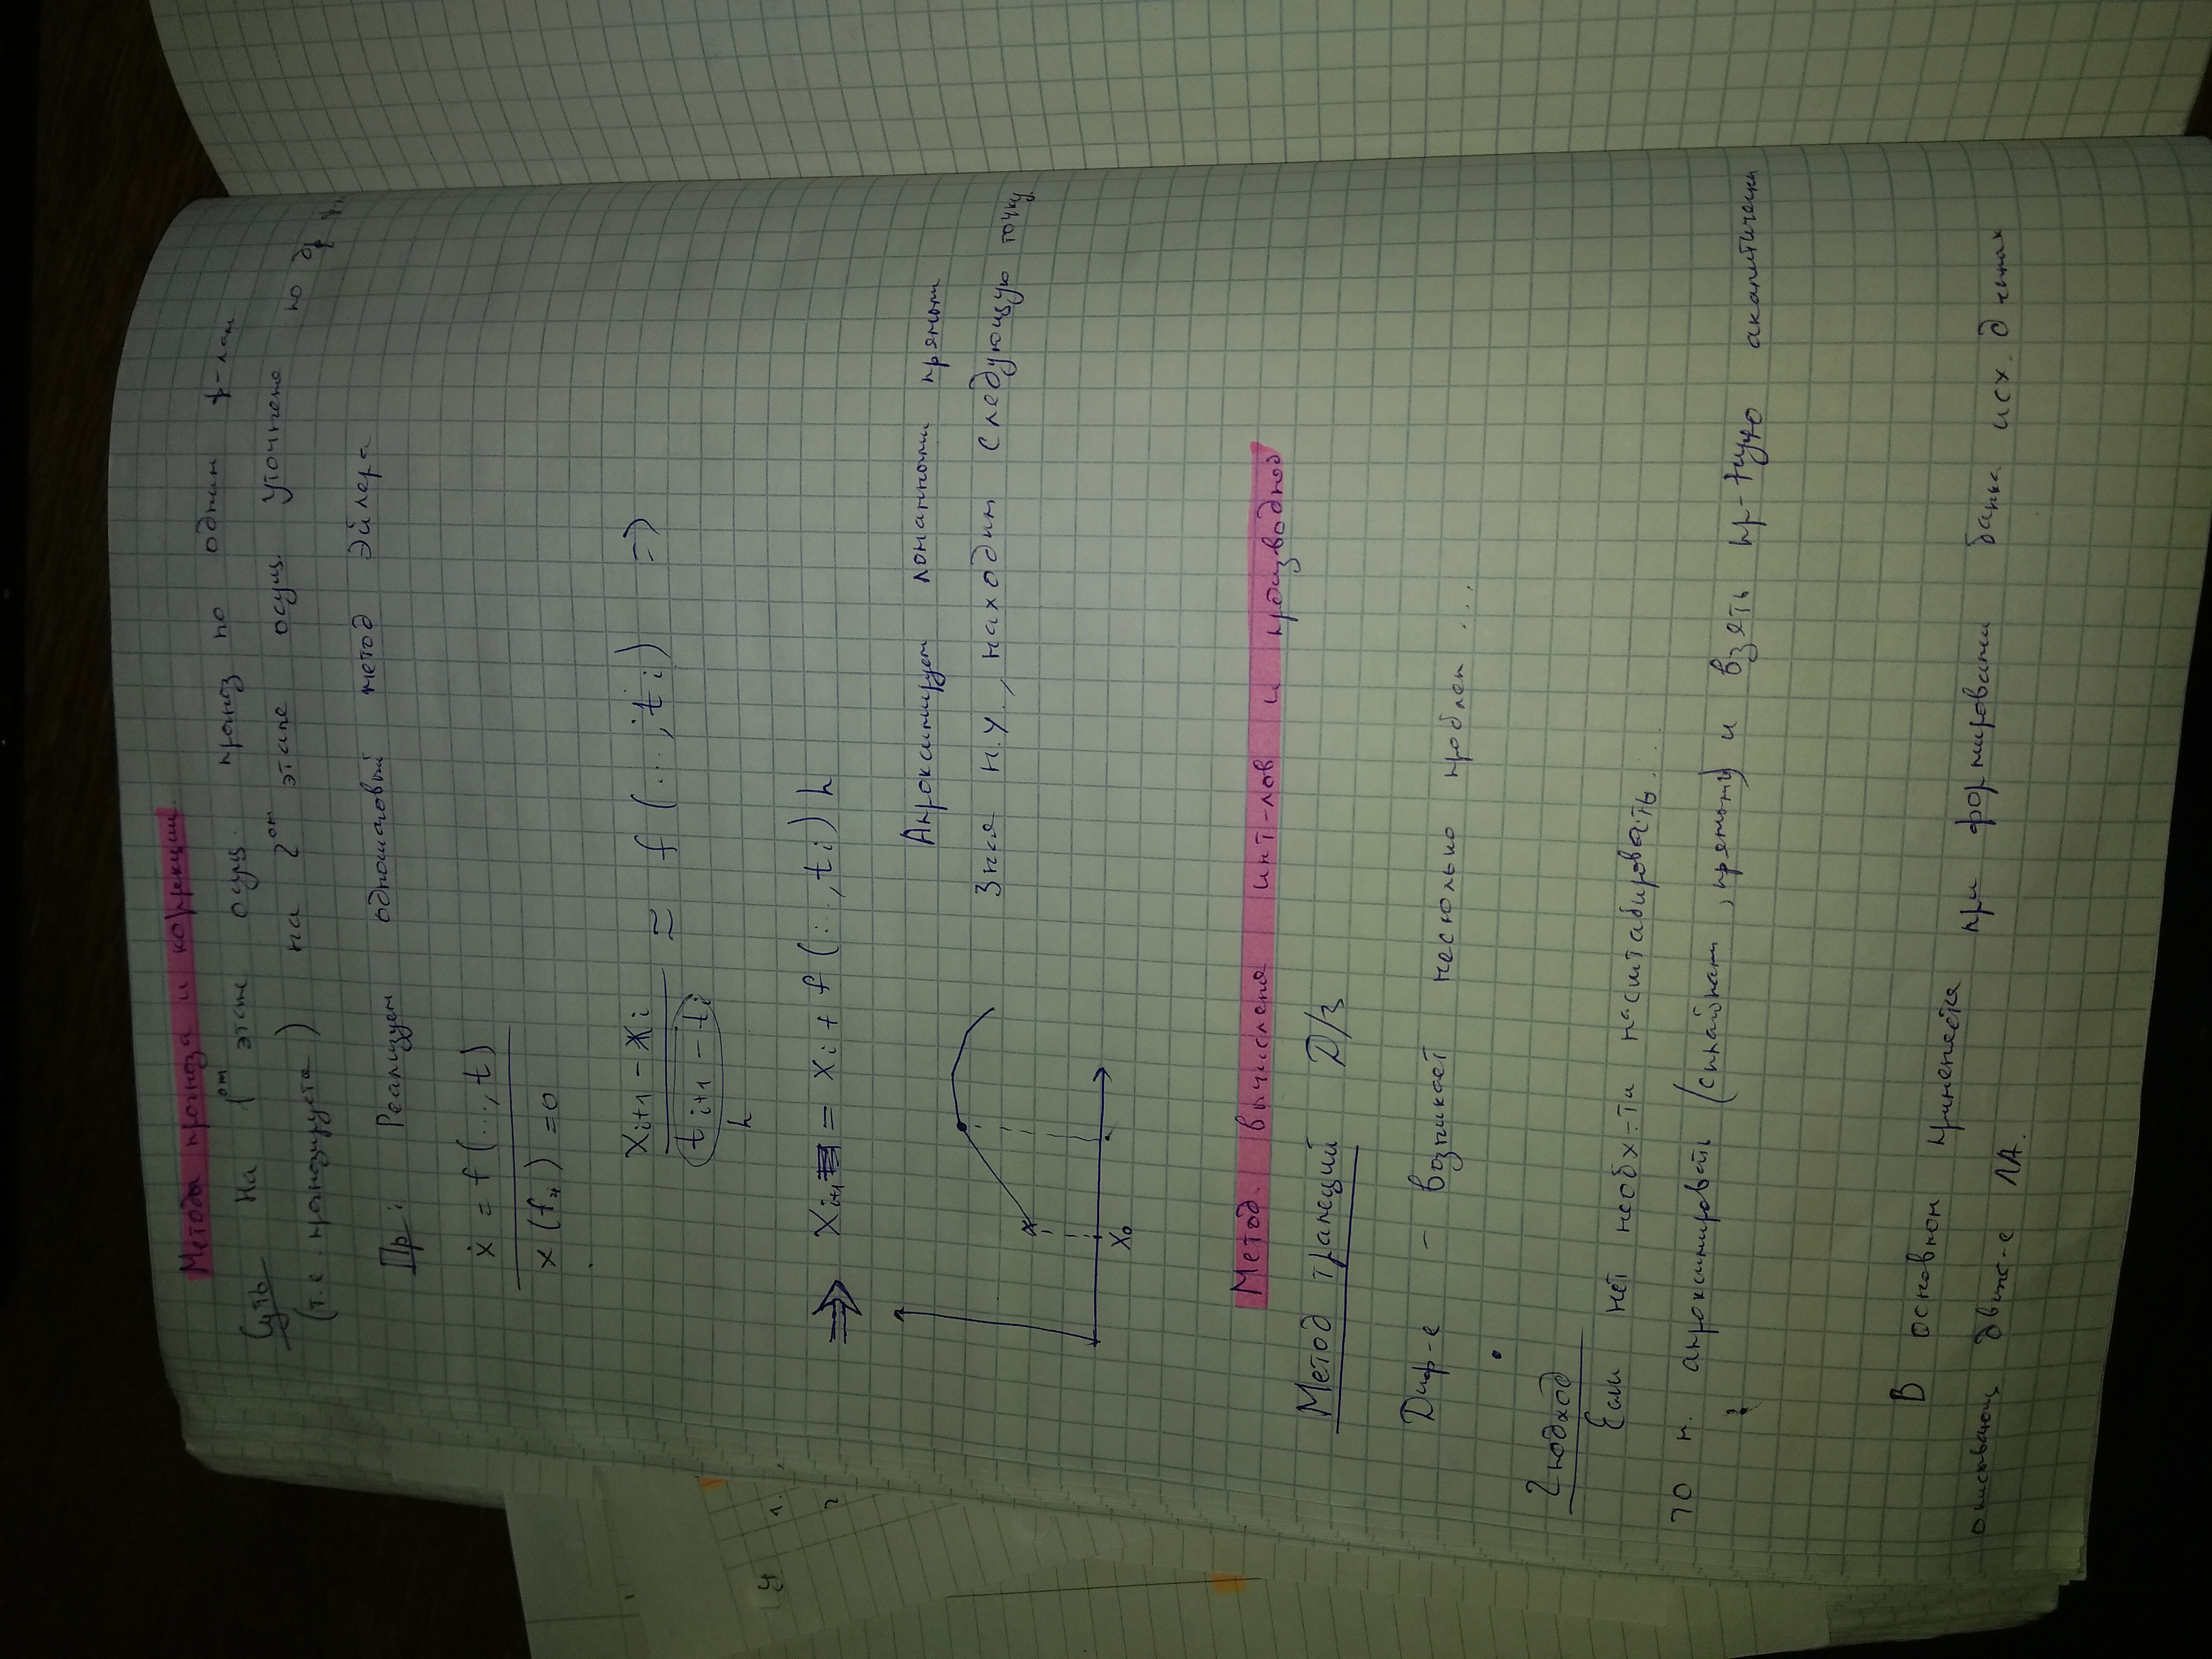 Методы прогноза и коррекции
Суть На 1ом этапе осущ. прогноз по одним ф-лам
(т.е. прогнозируется) на 2ом этапе осущ. уточнение по др.
Пр: Реализуем одношаговый метод Эйлера
ẋ = f(..., t)
x(t_н) = 0
(x_{i+1} - x_i) / (t_{i+1} - t_i) ≈ f(...; t_i) =>
h
=> x_{i+1} = x_i + f(..., t_i) h
Апроксимирует ломанными прямыми
Зная н.у., находим следующую точку
x₀
Метод. вычисления инт-лов и производной
Метод трапеций Д/З
Диф-е - возникает несколько проблем ...
2 подход
Если нет необх-ти масштабировать...
то м. апроксимировать (сплайном, прямой) и взять пр-ную аналитически
В основном применяется при формировании банка исх. данных
описывающ движ-е ЛА.